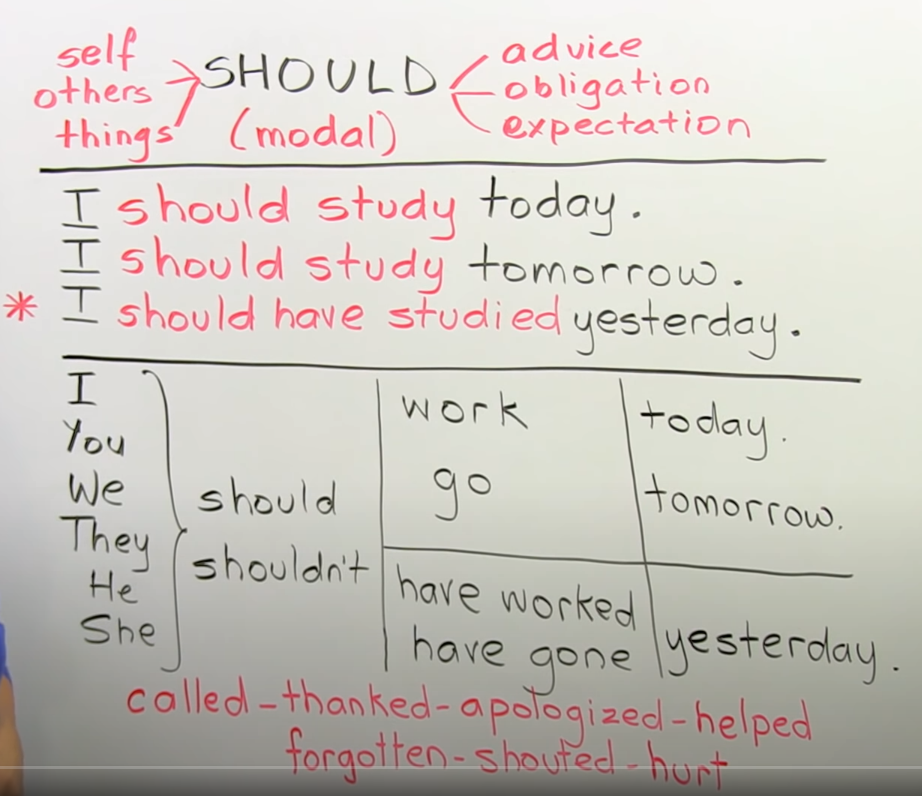 self
others
things
SHOULD
(modal)
advice
obligation
expectation
I should study today.
I should study tomorrow.
* I should have studied yesterday.
I
You
We
They
He
She
should
shouldn't
work
go
today.
tomorrow.
have worked
have gone
yesterday.
called-thanked-apologized-helped
forgotten-shouted-hurt